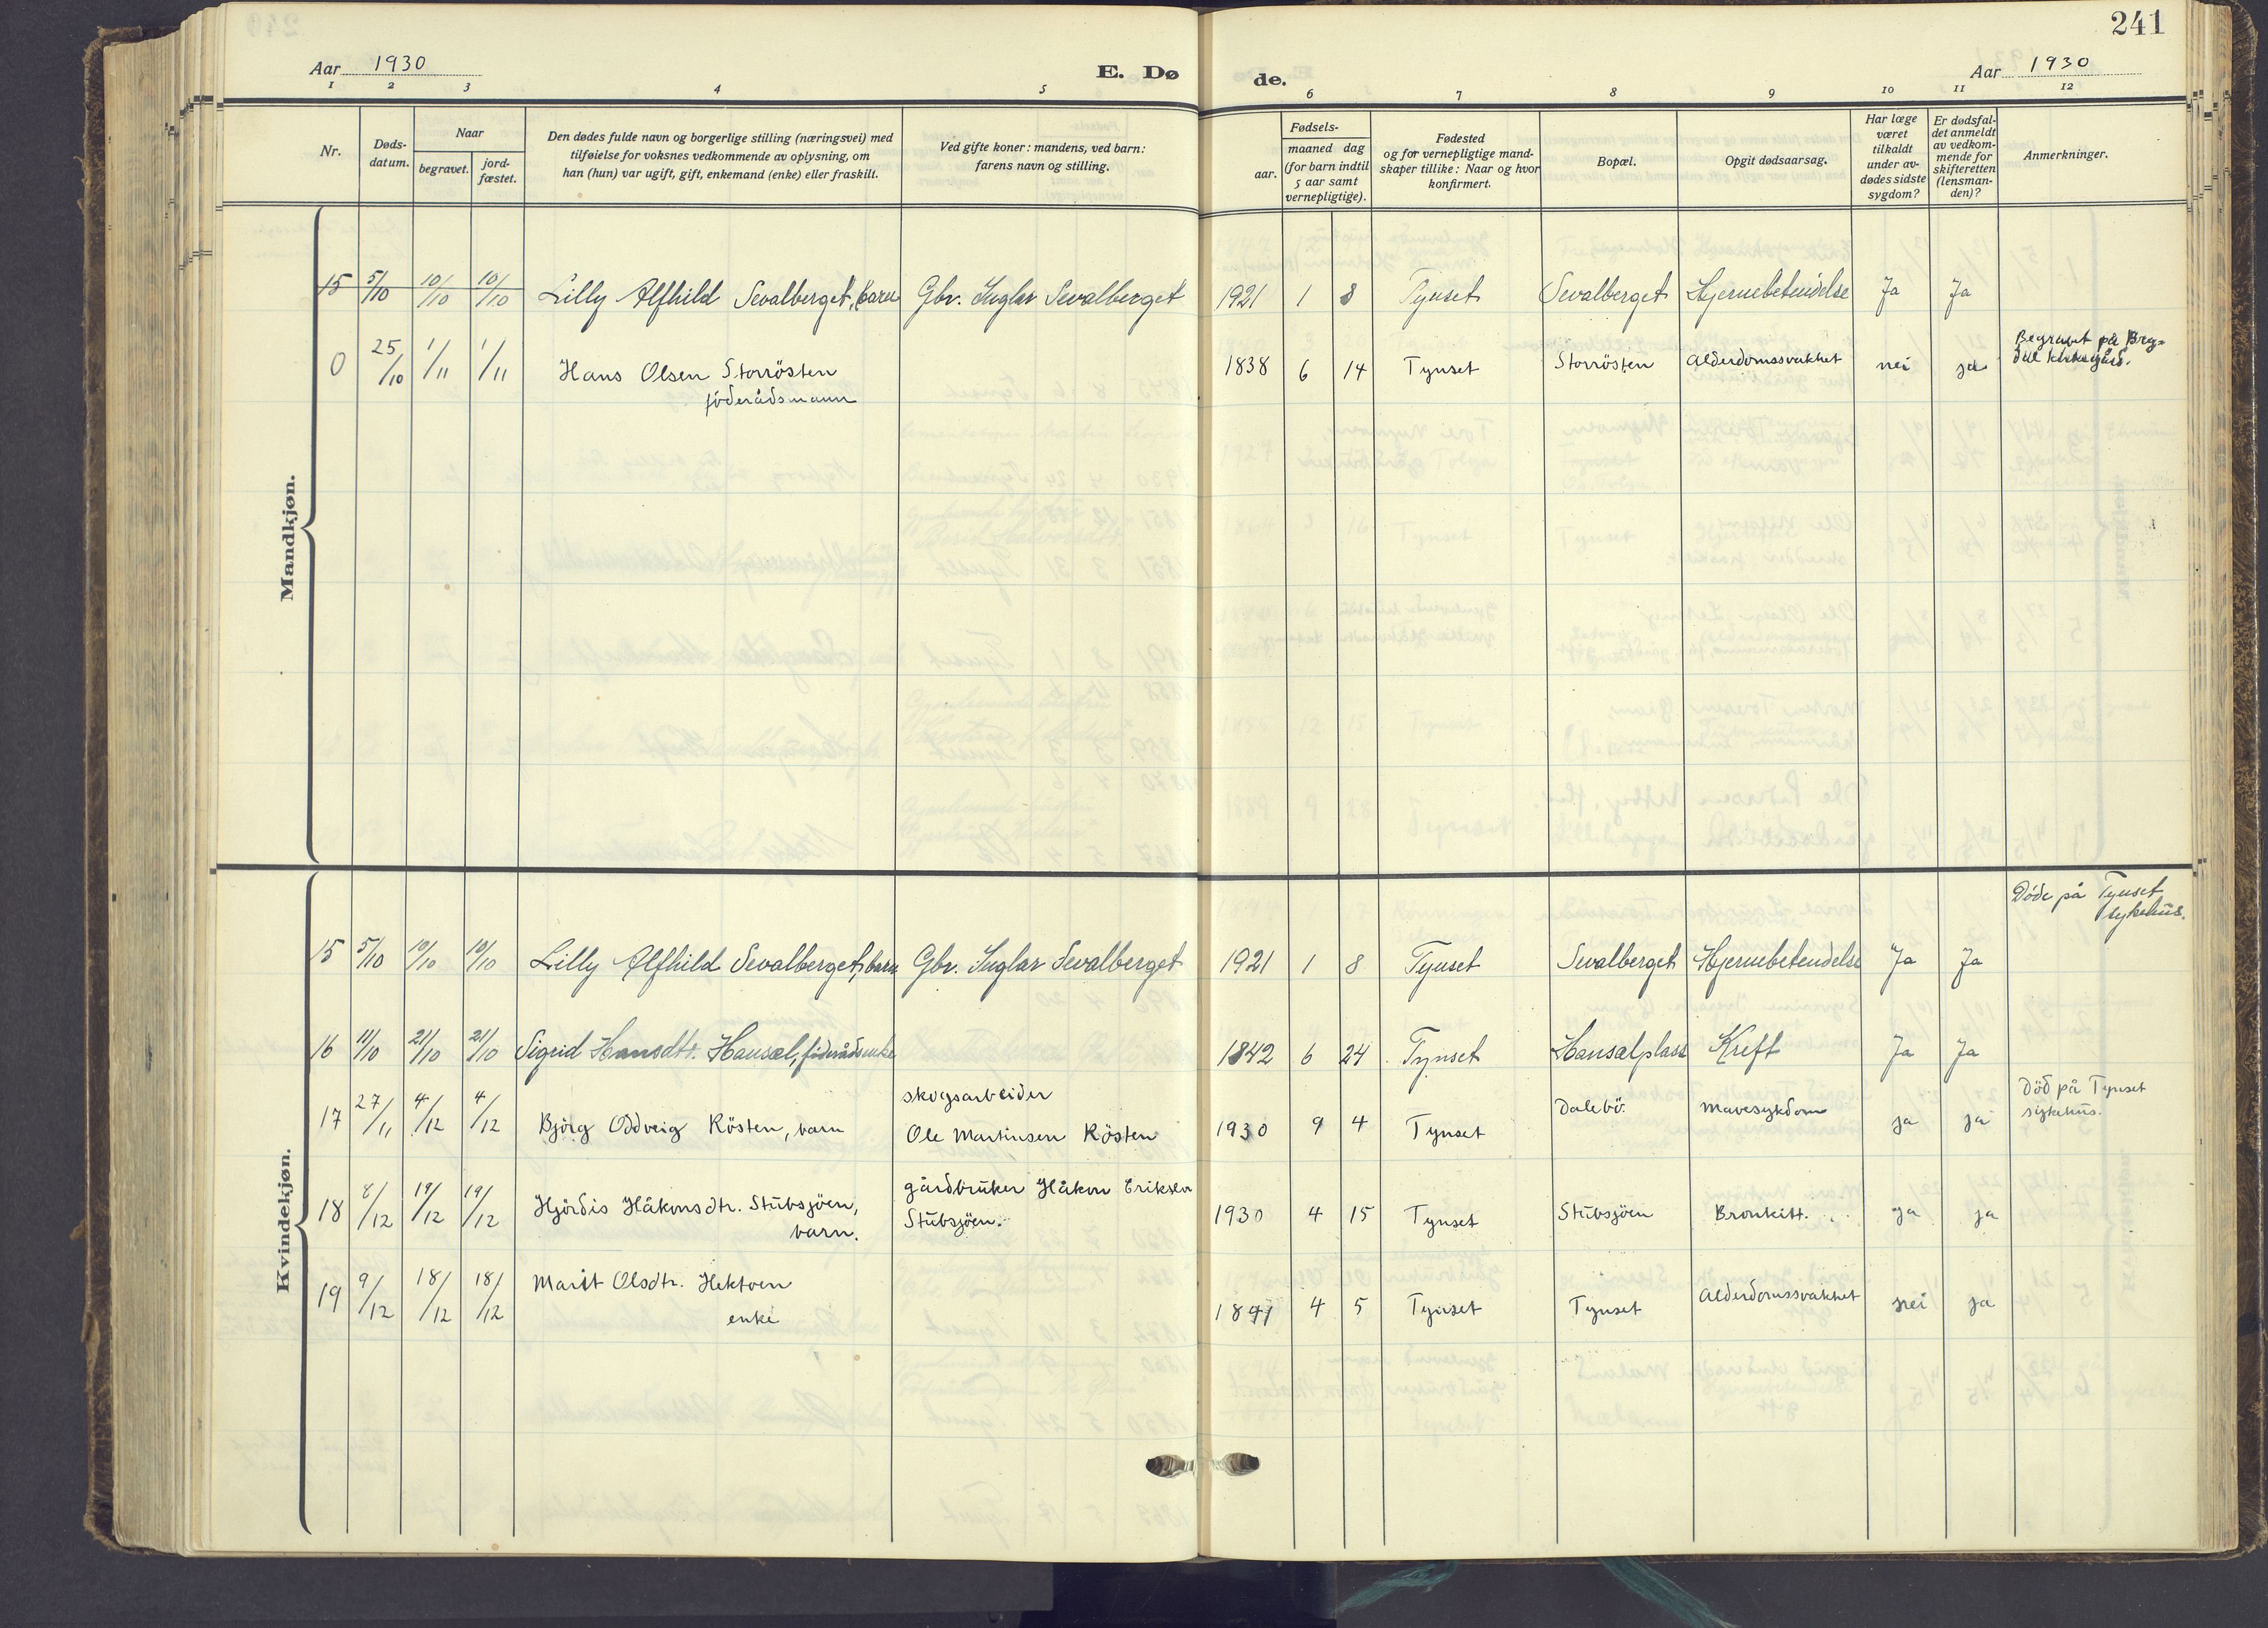 241
Aar 1930
E. Dø
de.
Aar 1930
1 2 3 4 5 6 7 8 9 10 11 12
Nr.
Døds-
datum.
Naar
begravet.
jord-
fæstet.
Den dødes fulde navn og borgerlige stilling (næringsvei) med
tilføielse for voksnes vedkommende av oplysning, om
han (hun) var ugift, gift, enkemand (enke) eller fraskilt.
Ved gifte koner: mandens, ved barn:
farens navn og stilling.
Fødsels-
aar.
maaned dag
(for barn indtil
5 aar samt
vernepligtige).
Fødested
og for vernepligtige mand-
skaper tillike: Naar og hvor
konfirmert.
Bopæl.
Opgit dødsaarsag.
Har læge
været
tilkaldt
under av-
dødes sidste
sygdom?
Er dødsfal-
det anmeldt
av vedkom-
mende for
skifteretten
(lensman-
den)?
Anmerkninger.
Mandkjøn.
15 5/10 10/10 10/10 Lilly Alfhild Sevalberget, barn Gbr. Inglar Sevalberget 1921 1 8 Tynset Sevalberget Hjernebetendelse Ja Ja
0 25/10 1/11 1/11 Hans Olsen Storrösten 1838 6 14 Tynset Storrösten Alderdomssvakhet nei ja Begravet på Bryg-
dal kirkegård.
föderådsmann
Kvindekjøn.
Döde på Tynset
sykehus.
15 5/10 10/10 10/10 Lilly Alfhild Sevalberget, barn Gbr. Inglar Sevalberget 1921 1 8 Tynset Sevalberget Hjernebetendelse Ja Ja
16 11/10 21/10 21/10 Sigrid Hansdtr. Hansal, föderådsenke 1842 6 24 Tynset Hansalplass Kreft Ja Ja
skogsarbeider
17 27/11 4/12 4/12 Björg Oddveig Rösten, barn Ole Martinsen Rösten 1930 9 4 Tynset Dalebö. Mavesykdom ja ja Död på Tynset
sykehus.
gårdbruker Håkon Eriksen
18 8/12 19/12 19/12 Hjördis Håkonsdtr. Stubsjöen, Stubsjöen. 1930 4 15 Tynset Stubsjöen Bronkitt. ja ja
barn.
19 9/12 18/12 18/12 Marit Olsdtr. Hektoen 4 5 Tynset Tynset Alderdomssvakhet nei ja
enke